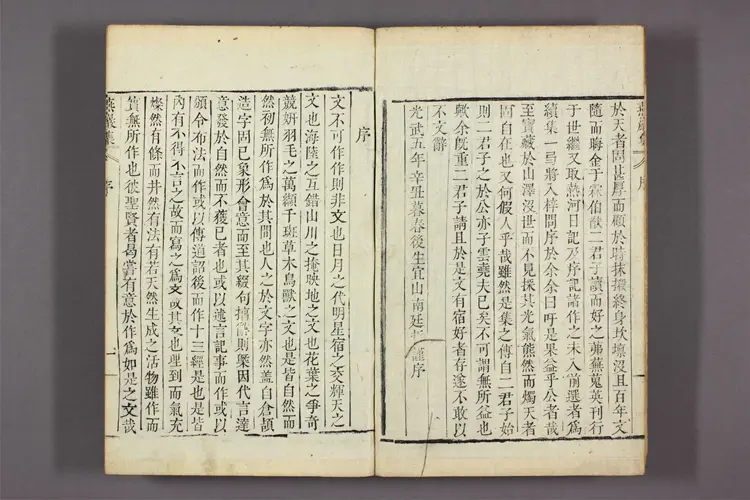 於天者固甚厚而顧於時抹摋終身坎壈沒且百年文
隨而晦金于霖伯猷二君子讀而好之茀蕪蒐英刊行
于世繼又取熱河日記及序記諸作之未入前選者爲
續集一弓將入梓問序於余余曰吁是果益乎公者哉
至寶藏於山澤沒世而不見採其光氣熊然而燭天者
固自在也又何假人乎哉雖然是集之傳自二君子始
則二君子之於公亦子雲堯夫已矣不可謂無所益也
歟余旣重二君子請且於是文有宿好者存遂不敢以
不文辭
光武五年辛丑暮春後生宜山南廷 謹序
序
文不可作作則非文也日月之代明星宿之交輝天之
文也海陸之互錯山川之掩映地之文也花葉之爭奇
競姸羽毛之萬纈千斑草木鳥獸之文也是皆自然而
然初無所作爲於其間也人之於文字亦然蓋自倉頡
造字固已象形會意而至其綴句摛辭則槩因代言達
意發於自然而不獲已者也或以述言記事而作或以
頒令布法而作或以傳道詔後而作十三經是也是皆
內有不得不言之故而寫之爲文故其文也理到而氣充
燦然有條而井然有法有若天然生成之活物雖作而
實無所作也彼聖賢者曷嘗有意於作爲如是之文哉
燕巖集 序 一